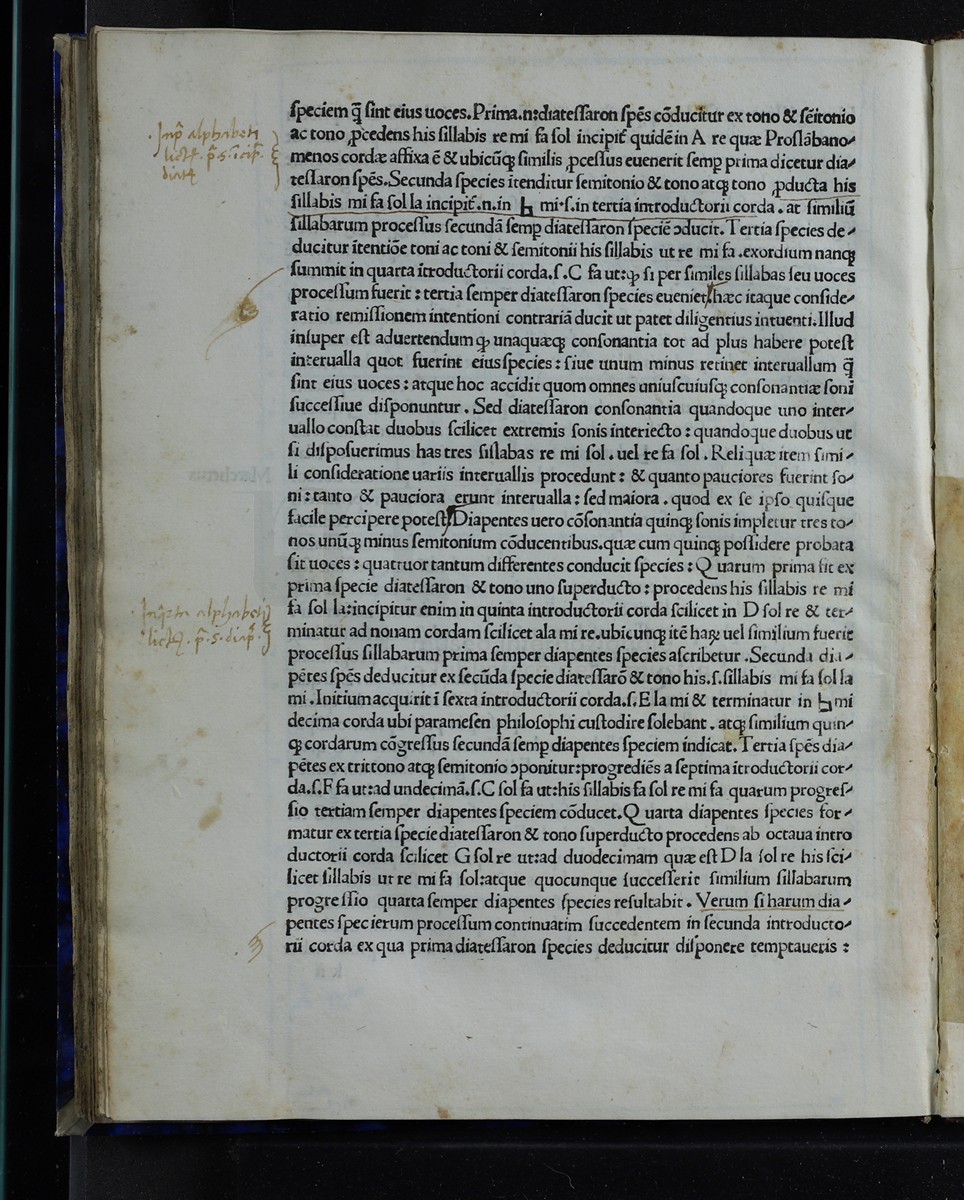 ſpeciem q̃ ſint eius uoces. Prima .n: diateſſaron ſpẽs cõducitur ex tono & ſẽitonio
ac tono ꝓcedens his ſillabis re mi fa ſol incipit̃ quidẽ in A re quæ Proſlãbano⸗
menos cordæ affixa ẽ & ubicũq; ſimilis ꝓceſſus euenerit ſemp prima dicetur dia⸗
teſſaron ſpẽs. Secunda ſpecies ĩtenditur ſemitonio & tono atq; tono ꝓducta his
ſillabis mi fa ſol la incipit̃ .n. in ♮ mi .ſ. in tertia introductorii corda . ac ſimiliũ
ſillabarum proceſſus ſecundã ſemp diateſſaron ſpeciẽ ↄducit. Tertia ſpecies de⸗
ducitur ĩtentiõe toni ac toni & ſemitonii his ſillabis ut re mi fa . exordium nanq;
ſummit in quarta ĩtroductorii corda. ſ. C fa ut: ꝙ ſi per ſimiles ſillabas ſeu uoces
proceſſum fuerit : tertia ſemper diateſſaron ſpecies eueniet, hæc itaque conſide⸗
ratio remiſſionem intentioni contrariã ducit ut patet diligentius intuenti. Illud
inſuper eſt aduertendum ꝙ unaquæq; conſonantia tot ad plus habere poteſt
interualla quot fuerint eius ſpecies : ſiue unum minus retinet interuallum q̃
ſint eius uoces : atque hoc accidit quom omnes uniuſcuiuſq; conſonantiæ ſoni
ſucceſſiue diſponuntur . Sed diateſſaron conſonantia quandoque uno inter⸗
uallo conſtat duobus ſcilicet extremis ſonis interiecto : quandoque duobus ut
ſi diſpoſuerimus has tres ſillabas re mi ſol . uel re fa ſol . Reliquæ item ſimi⸗
li conſideratione uariis interuallis procedunt : & quanto pauciores fuerint ſo⸗
ni : tanto & pauciora erunt interualla : ſed maiora . quod ex ſe ipſo quiſque
facile percipere poteſt, Diapentes uero cõſonantia quinq; ſonis impletur tres to⸗
nos unũq; minus ſemitonium cõducentibus. quæ cum quinq; poſſidere probata
ſit uoces : quattuor tantum differentes conducit ſpecies : Quarum prima ſit ex
prima ſpecie diateſſaron & tono uno ſuperducto : procedens his ſillabis re mi
fa ſol la: incipitur enim in quinta introductorii corda ſcilicet in D ſol re & ter⸗
minatur ad nonam cordam ſcilicet ala mi re. ubicunq; itẽ haꝝ uel ſimilium fuerit
proceſſus ſillabarum prima ſemper diapentes ſpecies aſcribetur . Secunda dia⸗
pẽtes ſpẽs deducitur ex ſecũda ſpecie diateſſarõ & tono his .ſ. ſillabis mi fa ſol la
mi . Initium acquirit ĩ ſexta introductorii corda. ſ. E la mi & terminatur in ♮ mi
decima corda ubi parameſen philoſophi cuſtodire ſolebant . atq; ſimilium quin⸗
q; cordarum cõgreſſus ſecundã ſemp diapentes ſpeciem indicat. Tertia ſpẽs dia⸗
pẽtes ex trittono atq; ſemitonio ↄponitur: progrediẽs a ſeptima ĩtroductorii cor⸗
da. ſ. F fa ut: ad undecimã. ſ. C ſol fa ut: his ſillabis fa ſol re mi fa quarum progreſ⸗
ſio tertiam ſemper diapentes ſpeciem cõducet. Quarta diapentes ſpecies for⸗
matur ex tertia ſpecie diateſſaron & tono ſuperducto procedens ab octaua intro
ductorii corda ſcilicet G ſol re ut: ad duodecimam quæ eſt D la ſol re his ſci⸗
licet ſillabis ut re mi fa ſol: atque quocunque ſucceſſerit ſimilium ſillabarum
progreſſio quarta ſemper diapentes ſpecies reſultabit . Verum ſi harum dia⸗
pentes ſpecierum proceſſum continuatim ſuccedentem in ſecunda introducto⸗
rii corda ex qua prima diateſſaron ſpecies deducitur diſponere temptaueris :